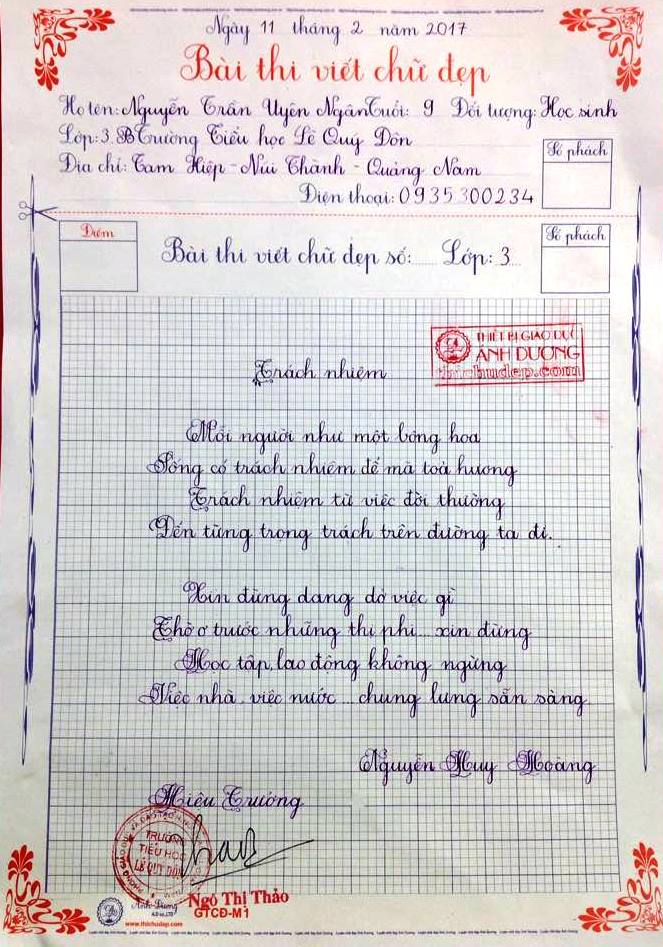 Ngày 11 tháng 2 năm 2017
Bài thi viết chữ đẹp
Họ tên: Nguyễn Trần Uyên Ngân Tuổi: 9 Đối tượng: Học sinh
Lớp: 3 B Trường Tiểu học Lê Quý Đôn
Địa chỉ: Tam Hiệp - Núi Thành - Quảng Nam
Số phách
Điện thoại: 0935 300234
Điểm
Bài thi viết chữ đẹp số: ...... Lớp: 3
Số phách
THIẾT BỊ GIÁO DỤC
ÁNH DƯƠNG
thichudep.com
Trách nhiệm
Mỗi người như một bông hoa
Sống có trách nhiệm để mà toả hương
Trách nhiệm từ việc đời thường
Đến từng trọng trách trên đường ta đi.
Xin đừng dang dở việc gì
Thờ ơ trước những thị phi ... xin đừng
Học tập, lao động không ngừng
Việc nhà, việc nước ... chung lưng sẵn sàng.
Nguyễn Huy Hoàng
Hiệu Trưởng
TRƯỜNG
TIỂU HỌC
LÊ QUÝ ĐÔN
Ngô Thị Thảo
GTCĐ-M1
Ánh Dương
www.thichudep.com